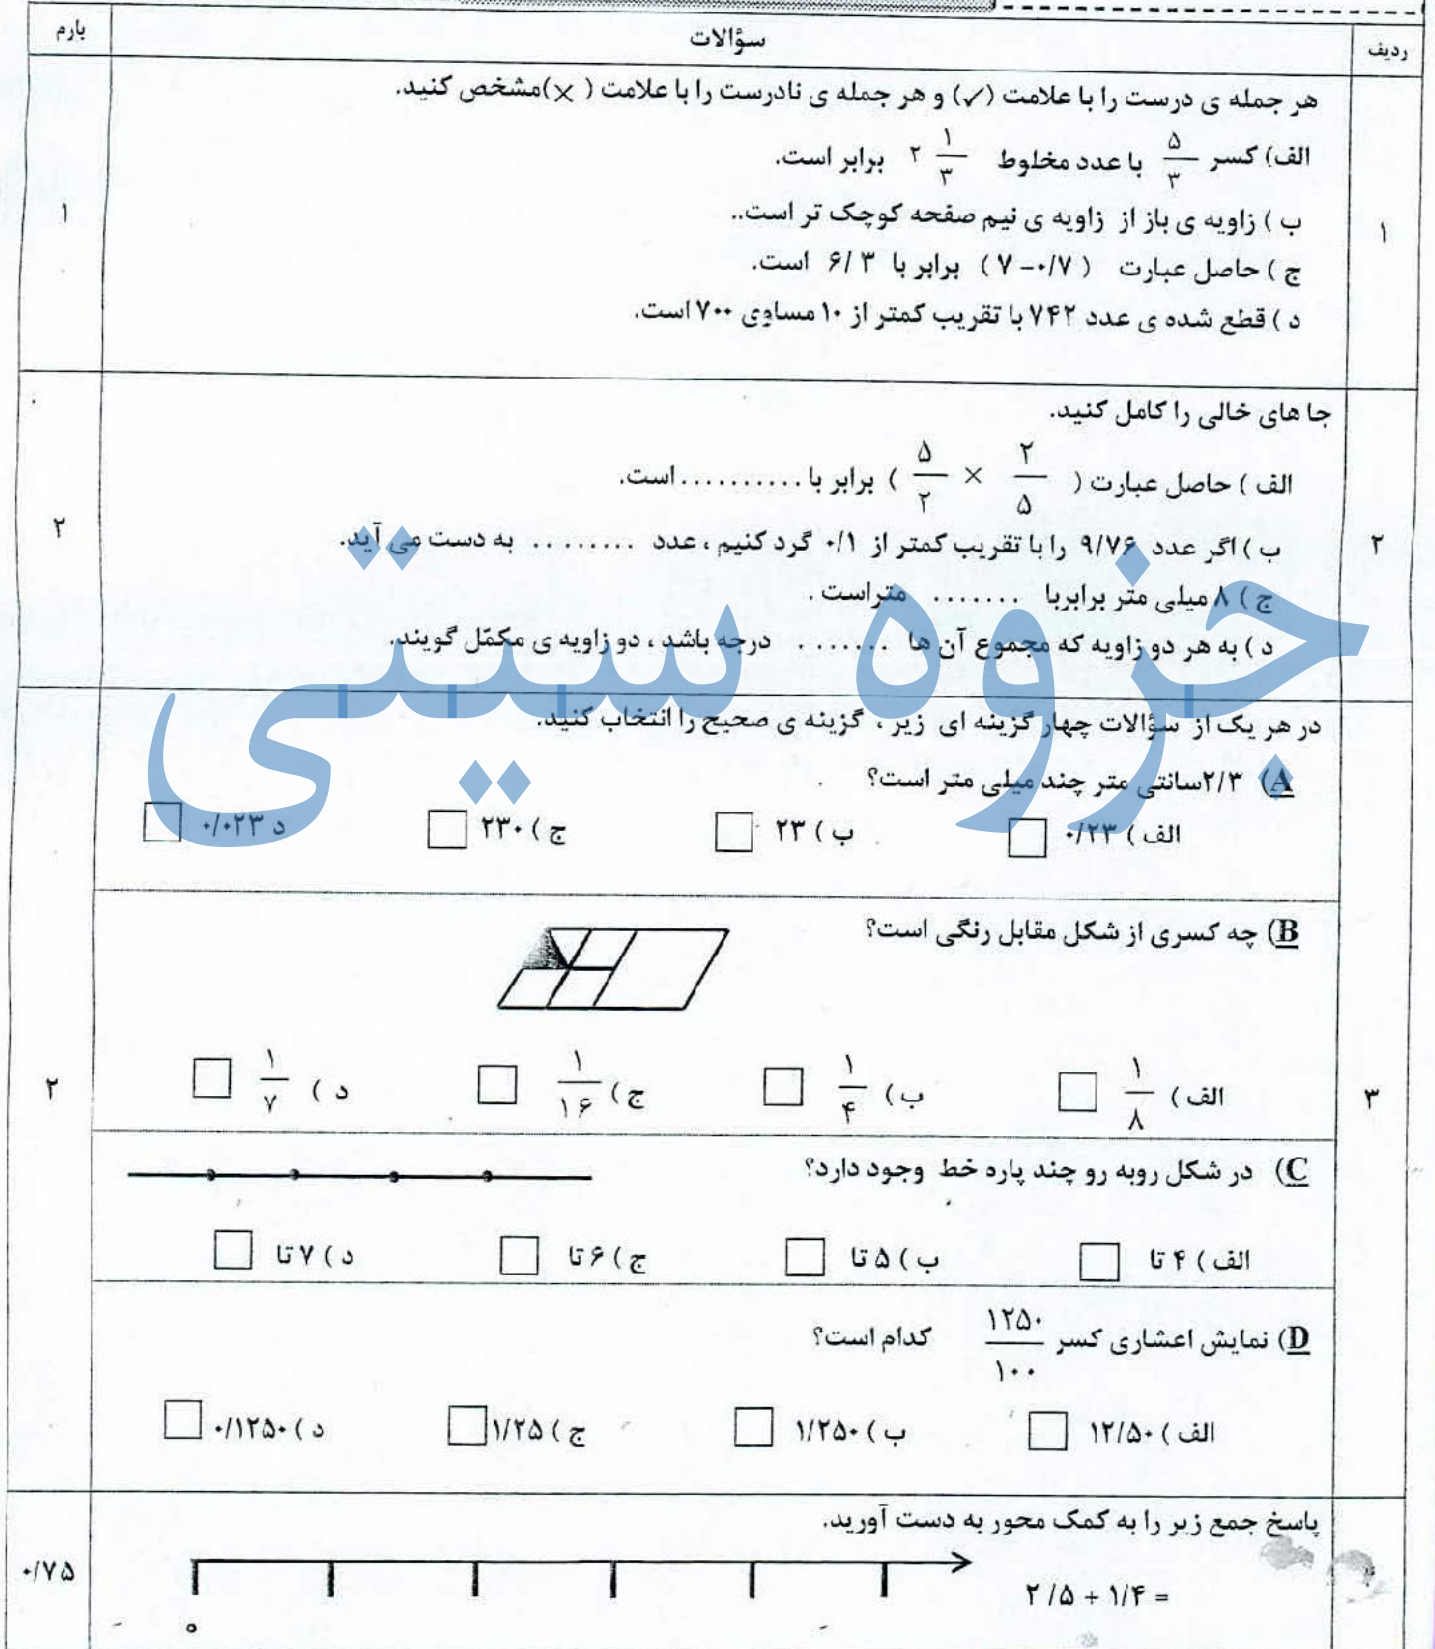 ردیف سؤالات بارم
۱ هر جمله ی درست را با علامت (✓) و هر جمله ی نادرست را با علامت ( × )مشخص کنید. ۱
الف) کسر ۵/۳ با عدد مخلوط ۲ ۱/۳ برابر است.
ب ) زاویه ی باز از زاویه ی نیم صفحه کوچک تر است..
ج ) حاصل عبارت ( ۷-۰/۷ ) برابر با ۶/۳ است.
د ) قطع شده ی عدد ۷۴۲ با تقریب کمتر از ۱۰ مساوی ۷۰۰ است.
۲ جا های خالی را کامل کنید. ۲
الف ) حاصل عبارت ( ۲/۵ × ۵/۲ ) برابر با .......... است.
ب ) اگر عدد ۹/۷۶ را با تقریب کمتر از ۰/۱ گرد کنیم ، عدد ........ به دست می آید.
ج ) ۸ میلی متر برابربا ....... متراست .
د ) به هر دو زاویه که مجموع آن ها ....... درجه باشد ، دو زاویه ی مکمّل گویند.
جزوه سیتی
۳ در هر یک از سؤالات چهار گزینه ای زیر ، گزینه ی صحیح را انتخاب کنید. ۲
A) ۲/۳سانتی متر چند میلی متر است؟
الف ) ۰/۲۳ ب ) ۲۳ ج ) ۲۳۰ د ۰/۰۲۳
B) چه کسری از شکل مقابل رنگی است؟
الف ) ۱/۸ ب ) ۱/۴ ج ) ۱/۱۶ د ) ۱/۷
C) در شکل روبه رو چند پاره خط وجود دارد؟
الف ) ۴ تا ب ) ۵ تا ج ) ۶ تا د ) ۷ تا
D) نمایش اعشاری کسر ۱۲۵۰/۱۰۰ کدام است؟
الف ) ۱۲/۵۰ ب ) ۱/۲۵۰ ج ) ۱/۲۵ د ) ۰/۱۲۵۰
پاسخ جمع زیر را به کمک محور به دست آورید. ۰/۷۵
۲/۵ + ۱/۴ =
۰